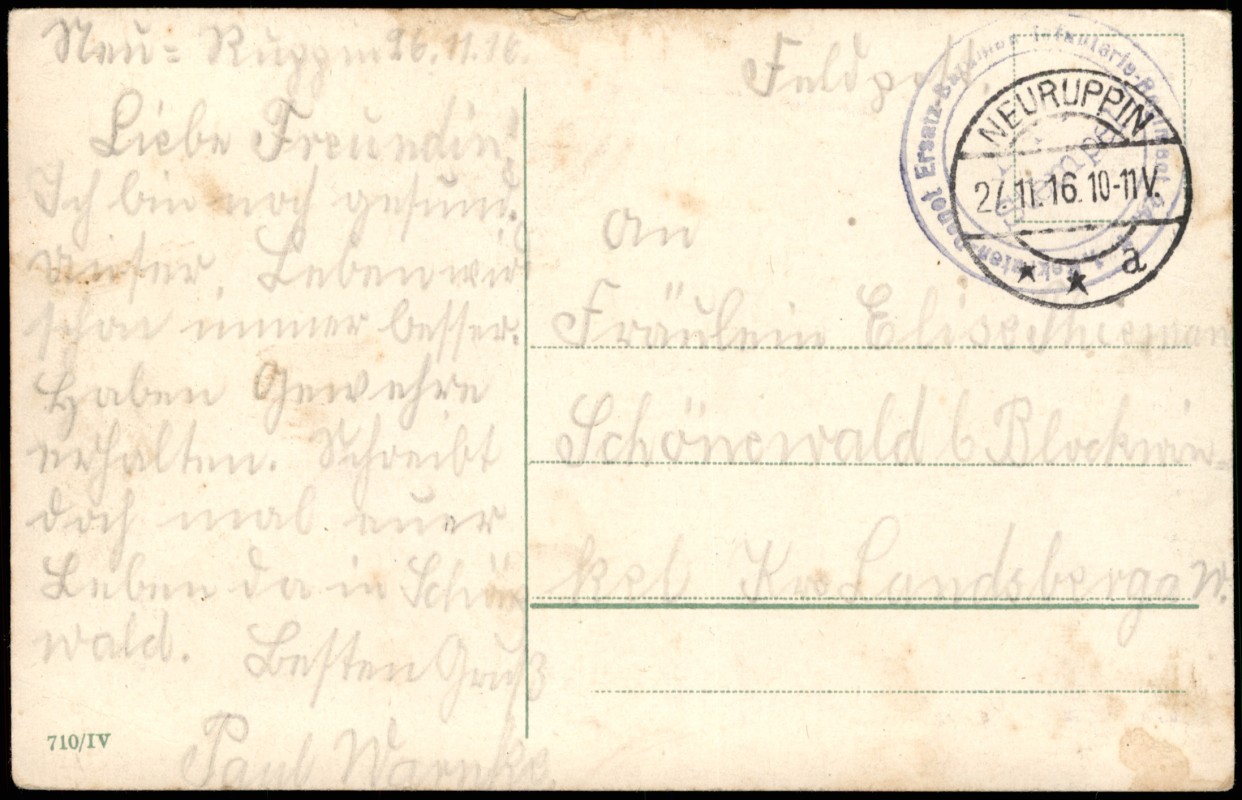 Neu-Ruppin 26.11.16.
Liebe Freundin!
Ich bin noch gesund.
Unser Leben wird
schon immer besser.
Haben Gewehre
erhalten. Schreibt
doch mal euer
Leben da in Schöne
wald.
Besten Gruß
Paul Warnke
710/IV
Feldpost.
Ersatz-Bataillon Infanterie-Regiment
Rekruten-Depot
NEURUPPIN
27.11.16.10-11V.
* * a
An
Fräulein Elise Thieman
Schönewald b Blockwin=
kel Krs Landsberg a W.